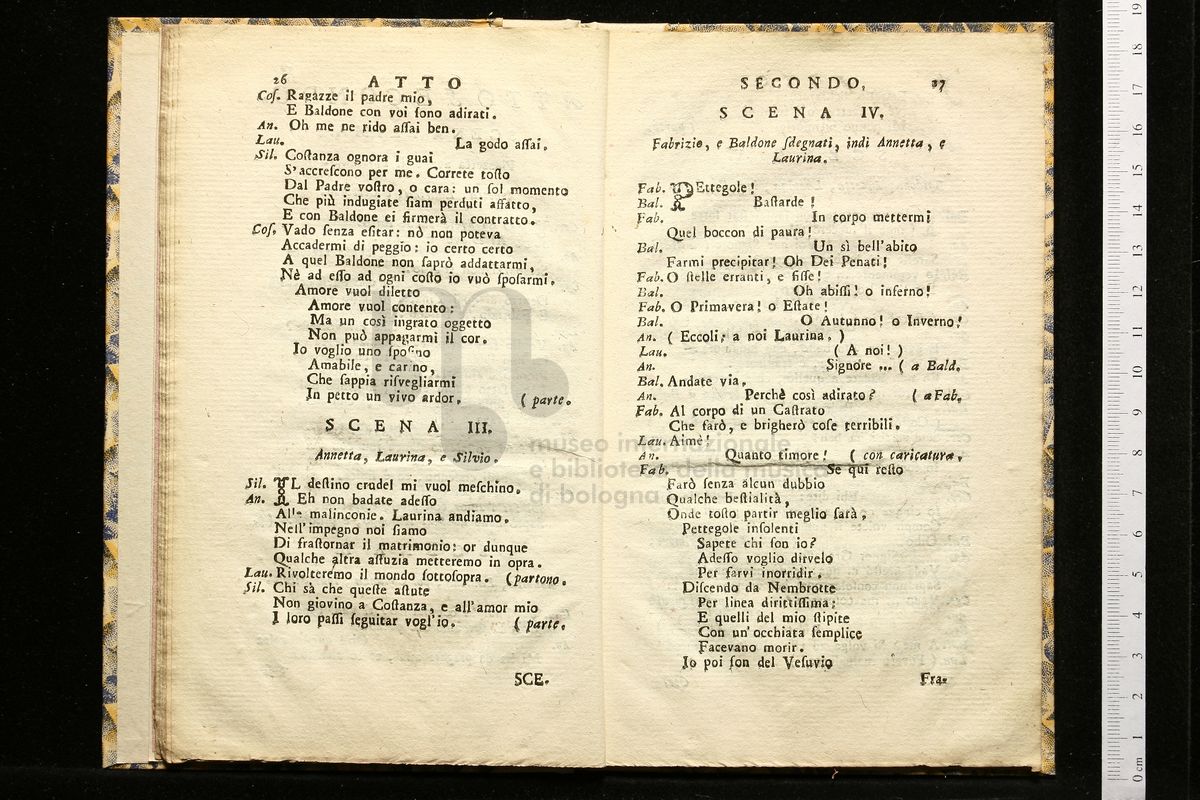 26 ATTO
Coſ. Ragazze il padre mio,
E Baldone con voi ſono adirati.
An. Oh me ne rido aſſai ben.
Lau. La godo aſſai.
Sil. Coſtanza ognora i guai
S'accreſcono per me. Correte toſto
Dal Padre voſtro, o cara: un ſol momento
Che più indugiate ſiam perduti affatto,
E con Baldone ei firmerà il contratto.
Coſ. Vado ſenza eſitar: nò non poteva
Accadermi di peggio: io certo certo
A quel Baldone non ſaprò addattarmi,
Nè ad eſſo ad ogni coſto io vuò ſpoſarmi.
Amore vuol diletto
Amore vuol contento:
Ma un così ingrato oggetto
Non può appagarmi il cor.
Io voglio uno ſpoſino
Amabile, e carino,
Che ſappia riſvegliarmi
In petto un vivo ardor. (parte.
SCENA III.
Annetta, Laurina, e Silvio.
Sil. IL deſtino crudel mi vuol meſchino.
An. Eh non badate adeſſo
Alle malinconie. Laurina andiamo.
Nell'impegno noi ſiamo
Di fraſtornar il matrimonio: or dunque
Qualche altra aſtuzia metteremo in opra.
Lau. Rivolteremo il mondo ſottoſopra. (partono.
Sil. Chi sà che queſte aſtute
Non giovino a Coſtanza, e all'amor mio
I loro paſſi ſeguitar vogl'io. (parte.
SCE-
SECONDO. 27
SCENA IV.
Fabrizio, e Baldone ſdegnati, indi Annetta, e
Laurina.
Fab. PEttegole!
Bal. Baſtarde!
Fab. In corpo mettermi
Quel boccon di paura!
Bal. Un sì bell'abito
Farmi precipitar! Oh Dei Penati!
Fab. O ſtelle erranti, e fiſſe!
Bal. Oh abiſſi! o inferno!
Fab. O Primavera! o Eſtate!
Bal. O Autunno! o Inverno!
An. (Eccoli; a noi Laurina.)
Lau. (A noi!)
An. Signore ... (a Bald.
Bal. Andate via.
An. Perchè così adirato? (a Fab.
Fab. Al corpo di un Caſtrato
Che farò, e brigherò coſe terribili.
Lau. Aimè!
An. Quanto timore! (con caricatura.
Fab. Se qui reſto
Farò ſenza alcun dubbio
Qualche beſtialità,
Onde toſto partir meglio ſarà.
Pettegole inſolenti
Sapete chi ſon io?
Adeſſo voglio dirvelo
Per farvi inorridir.
Diſcendo da Nembrotte
Per linea dirittiſſima;
E quelli del mio ſtipite
Con un'occhiata ſemplice
Facevano morir.
Io poi ſon del Veſuvio
Fra-
museo internazionale
e biblioteca della musica
di bologna
0 cm 1 2 3 4 5 6 7 8 9 10 11 12 13 14 15 16 17 18 19